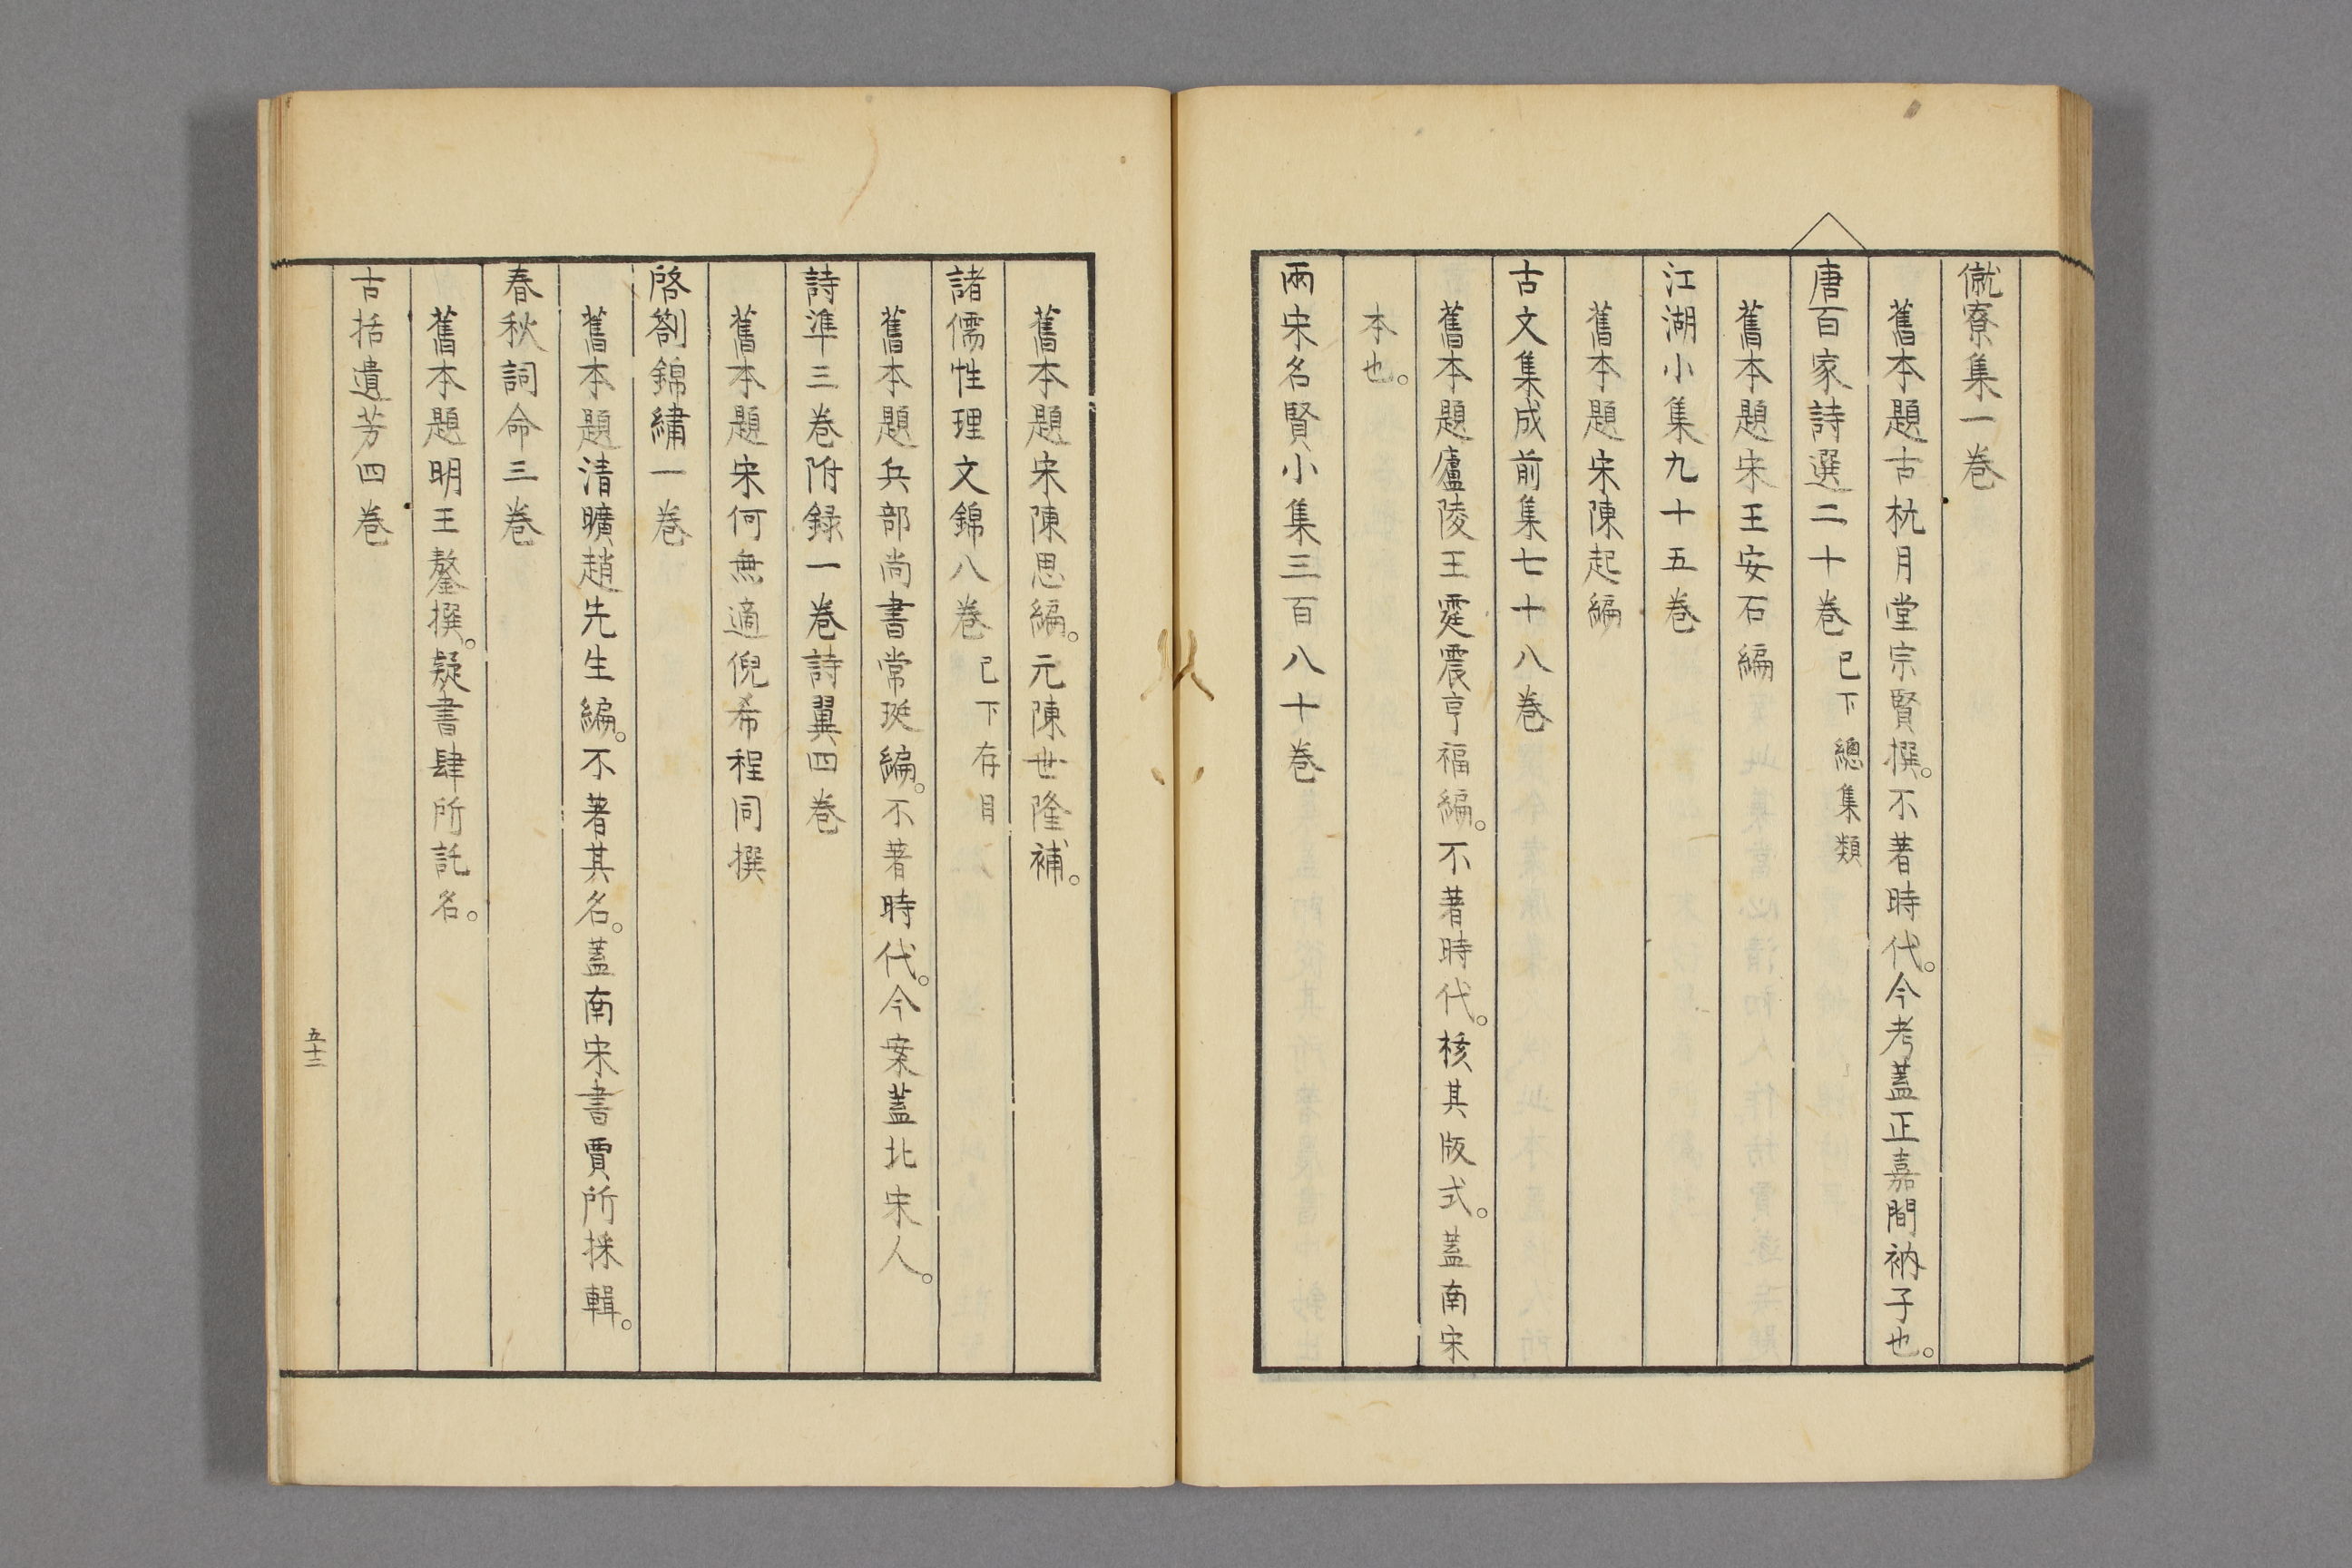 僦寮集一卷
舊本題古杭月堂宗賢撰。不著時代。今考蓋正嘉間衲子也。
唐百家詩選二十卷 已下總集類
舊本題宋王安石編
江湖小集九十五卷
舊本題宋陳起編
古文集成前集七十八卷
舊本題廬陵王霆震亨福編。不著時代。核其版式。蓋南宋
本也。
兩宋名賢小集三百八十卷
舊本題宋陳思編。元陳世隆補。
諸儒性理文錦八卷 已下存目
舊本題兵部尚書常珽編。不著時代。今案蓋北宋人。
詩準三卷附録一卷詩翼四卷
舊本題宋何無適倪希程同撰
啓劄錦繡一卷
舊本題清曠趙先生編。不著其名。蓋南宋書賈所採輯。
春秋詞命三卷
舊本題明王鏊撰。疑書肆所託名。
古括遺芳四卷
五十三